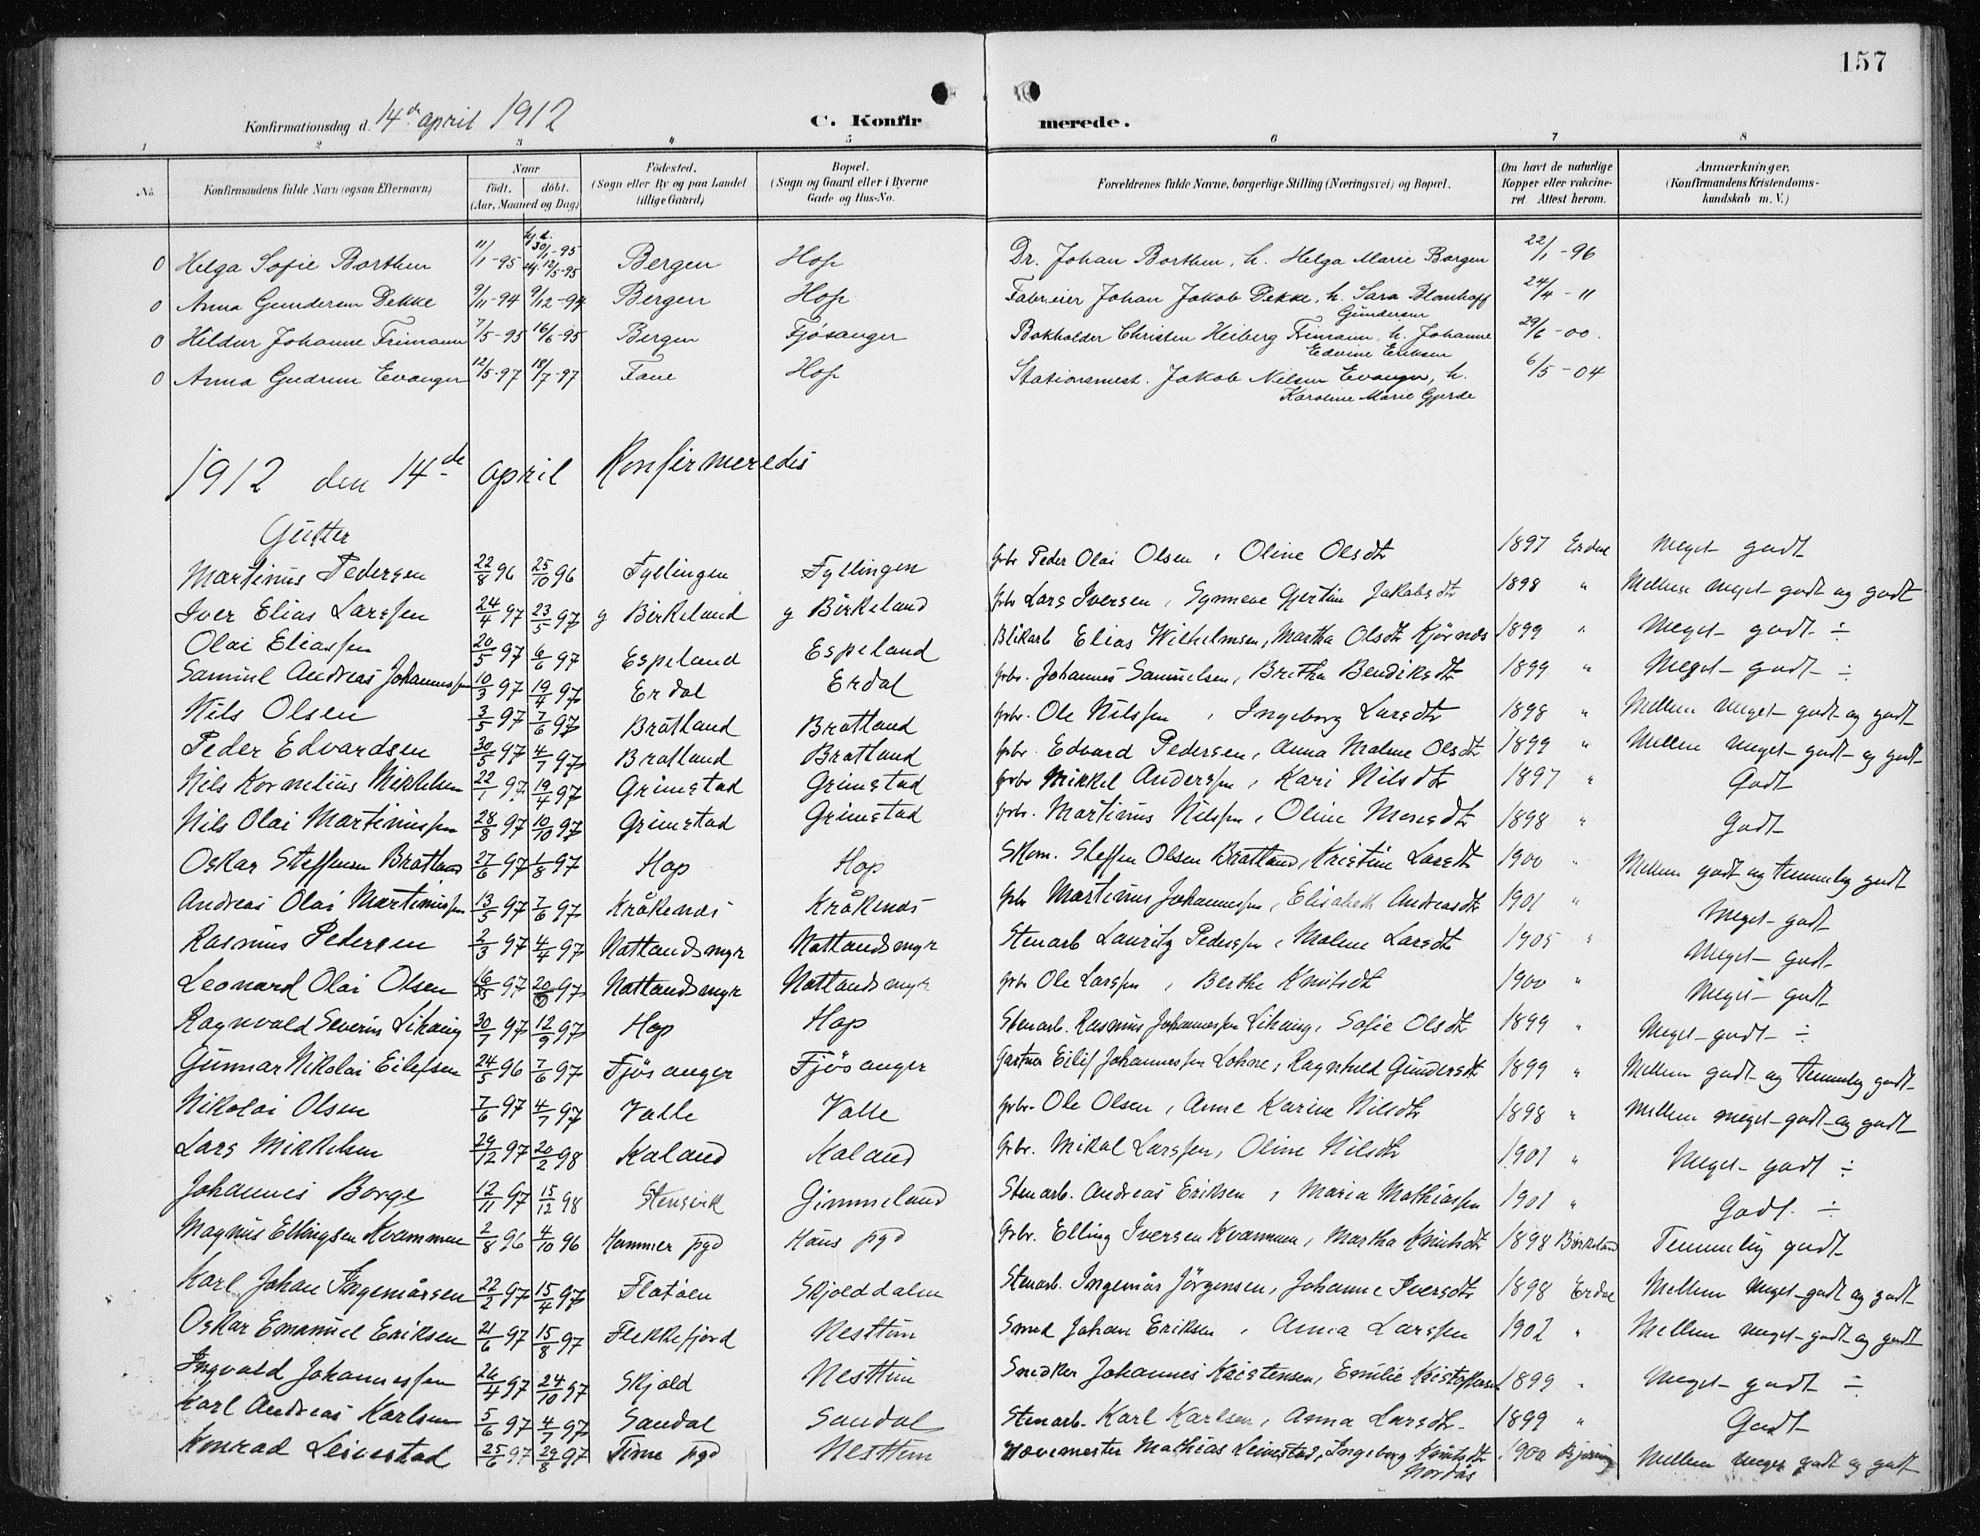 157
Konfirmationsdag d. 14de april 1912 C. Konfirmerede.
1 2 3 4 5 6 7 8
No. Konfirmandens fulde Navn (ogsaa Efternavn) Naar født. døbt. (Aar, Maaned og Dag) Fødested. (Sogn eller By og paa Landet tillige Gaard) Bopæl. (Sogn og Gaard eller i Byerne Gade og Hus-No. Forældrenes fulde Navne, borgerlige Stilling (Næringsvei) og Bopæl. Om havt de naturlige Kopper eller vakcineret. Attest herom. Anmærkninger. (Konfirmandens Kristendomskundskab m.V.)
0 Helga Sofie Borthen 11/1-95 30/1-95 12/5-95 Bergen Hop Dr. Johan Borthen, h. Helga Marie Borgen 22/1-96
0 Anna Gundersen Dekke 9/11-94 9/12-94 Bergen Hop Johan Jakob Dekke, h. Sara Blomhoff Gundersen 24/4-11
0 Hildur Johanne Frimann 7/5-95 16/6-95 Bergen Fjøsanger Bokholder Christen Heiberg Frimann, h. Johanne Edvine Eriksen 29/6-00.
0 Anna Gudrun Evanger 12/5-97 18/7-97 Fane Hop Stationsmest. Jakob Nilsen Evanger, h. Karoline Marie Gjerde 6/5-04
1912 den 14de april Konfirmeredes
Gutter
Martinus Pedersen 22/8 96 25/10 96 Fyllingen Fyllingen Gbr Peder Olai Olsen, Oline Olsdtr 1897 Erdal Meget godt
Iver Elias Larssen 24/4 97 23/5 97 y Birkeland y Birkeland Gbr Lars Iversen, Synneve Gjertine Jakobsdtr 1898 " Mellem meget godt og godt
Olai Eliassen 20/5 97 6/6 97 Espeland Espeland Blikarb Elias Wilhelmsen, Martha Olsdtr Kjørnes 1899 " Meget godt ÷
Samuel Andreas Johannessen 10/3 97 19/4 97 Erdal Erdal Gbr. Johannes Samuelsen, Britha Bendiksdtr 1899 " Meget godt ÷
Nils Olsen 3/5 97 7/6 97 Bratland Bratland Gbr. Ole Nilssen, Ingeborg Larsdtr 1898 " Mellem meget godt og godt
Peder Edvardsen 30/5 97 4/7 97 Bratland Bratland Gbr. Edvard Pedersen, Anna Malene Olsdtr 1899 " Mellem meget godt og godt
Nils Kornelius Mikkelsen 22/1 97 19/4 97 Grimstad Grimstad Gbr Mikkel Anderssen, Kari Nilsdtr 1897 " Godt
Nils Olai Martinussen 28/8 97 10/10 97 Grimstad Grimstad Gbr. Martinus Nilssen, Oline Monsdtr 1898 " Godt
Oskar Steffensen Bratland 27/6 97 1/8 97 Hop Hop Skom. Steffen Olsen Bratland, Kristine Larsdtr 1900 " Mellem godt og temmelig godt
Andreas Olai Martinussen 13/5 97 7/6 97 Kråkenes Kråkenes Gbr Martinus Johannessen, Elisabeth Andreasdtr 1901 " Meget godt
Rasmus Pedersen 2/3 97 4/4 97 Nattlandsmyr Nattlandsmyr Stenarb Lauritz Pederssen, Malene Larsdtr 1905 " Meget godt
Leonard Olai Olsen 16/5 97 20/6 97 Nattlandsmyr Nattlandsmyr Gbr Ole Larssen, Berthe Knutsdtr 1900 " Meget godt
Ragnvald Severin Lihaug 30/7 97 12/9 97 Hop Hop Stenarb. Rasmus Johannessen Lihaug, Sofie Olsdtr 1899 " Meget godt ÷
Gunnar Nikolai Eilefsen 24/5 96 7/6 97 Fjøsanger Fjøsanger Gartner Eilif Johannessen Lohne, Ragnhild Gundersdtr 1899 " Mellem godt og temmelig godt
Nikolai Olsen 7/6 97 4/7 97 Valle Valle Gbr. Ole Olsen, Anne Karine Nilsdtr 1898 " Mellem meget godt og godt
Lars Mikkelsen 29/12 97 20/2 98 Kaland Kaland Gbr. Mikal Larssen, Oline Nilsdtr 1901 " Meget godt ÷
Johannes Borge 12/11 97 15/12 98 Stensvik Gimmeland Stenarb. Andreas Eriksen, Maria Mathiassen 1901 " Godt ÷
Magnus Ellingsen Kvammen 2/8 96 4/10 96 Hammer pgd Haus pgd Gbr. Elling Iversen Kvammen, Martha Knutsdtr 1898 Birkeland Temmelig godt
Karl Johan Ingemarsen 22/2 97 15/4 97 Flatøen Skjolddalen Stenarb. Ingemar Jörgensen, Johanne Iversdtr 1898 Erdal Mellem meget godt og godt
Oskar Emanuel Eriksen 21/6 97 15/8 97 Flekkefjord Nesttun Smed Johan Eriksen, Anna Larssen 1902 " Mellem meget godt og godt
Ingvald Johannessen 26/4 97 24/10 97 Skjold Nesttun Snedker Johannes Kristensen, Emilie Kristoffersen 1899 " Meget godt ÷
Karl Andreas Karlsen 5/6 97 4/7 97 Sandal Sandal Stenarb. Karl Karlsen, Anna Larsdtr 1899 " Godt
Konrad Leivestad 25/6 97 29/8 97 Time pgd Nesttun Vævemester Mathias Leivestad, Ingeborg Knutsdtr Nordås 1900 Mellem meget godt og godt